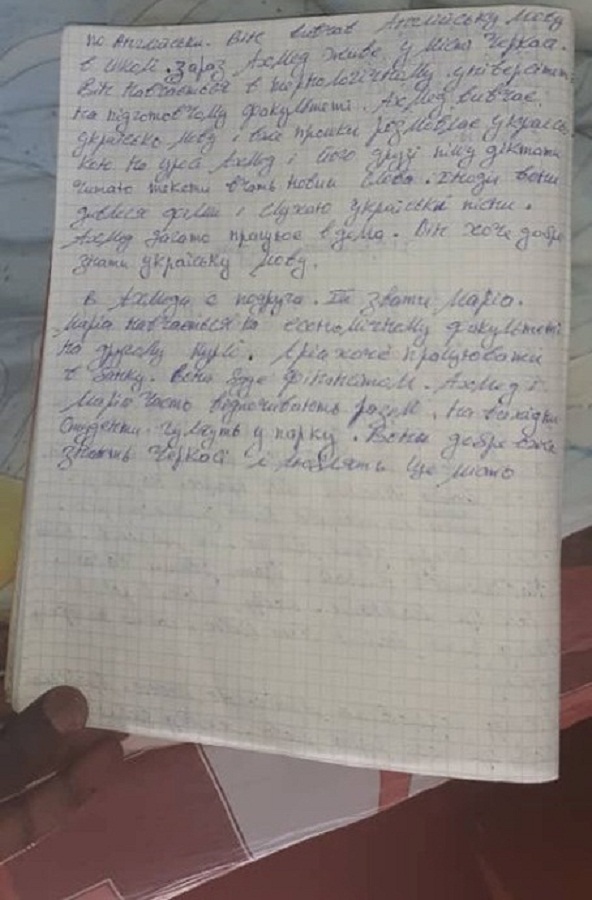 по Англійськи. Він вивчав Англійську мову
в школі. зараз Ахмед живе у місті Черкас.
Він навчаєтося в технологічному університеті.
на підготовчому факультеті. Ахмед вивчає
українсько мову і вже трошки розмовляє українсь
кою на уроці Ахмед і його друзі пішу діктати
читаю тексти вчать новии слова. Іноди вони
дивляся филми і слухаю українські пісни.
Ахмед багато працює вдома. Він хоче добре
знати українську мову.
в Ахмеда є подруга. Її звати Маріа.
Маріа навчається на економічному факультеті
на другому курсі. Мріа хоче працювати
в банку. Вона буде фінансистом. Ахмед і
Маріа часть відпочивають разом. на вихідни
Студенти гуляуть у парку. Вони добре вже
знають Черкасі і люблять це місто